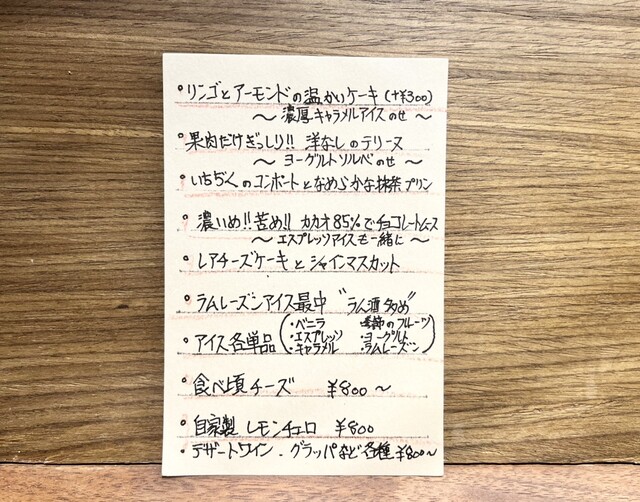 ・リンゴとアーモンドの温かいケーキ (+¥300)
〜濃厚キャラメルアイスのせ〜
・果肉だけぎっしり!! 洋なしのテリーヌ
〜ヨーグルトソルベのせ〜
・いちぢくのコンポートとなめらかな抹茶プリン
・濃いめ!! 苦め!! カカオ85%でチョコレートムース
〜エスプレッソアイスも一緒に〜
・レアチーズケーキとシャインマスカット
・ラムレーズンアイス最中 "ラム酒多め"
・アイス各単品
(・バニラ ・季節のフルーツ
・エスプレッソ ・ヨーグルト
・キャラメル ・ラムレーズン)
・食べ頃チーズ ¥800〜
・自家製レモンチェロ ¥800
・デザートワイン.グラッパなど各種¥800〜